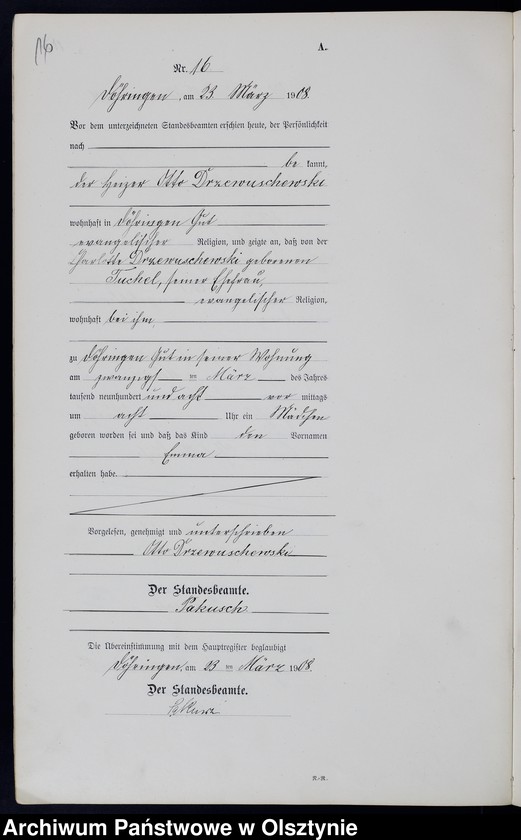 16
A.
Nr. 16
Döhringen, am 23 März 1908.
Vor dem unterzeichneten Standesbeamten erschien heute, der Persönlichkeit
nach
be kannt,
der Heizer Otto Drzewuschewski
wohnhaft in Döhringen Gut
evangelischer Religion, und zeigte an, daß von der
Charlotte Drzewuschewski geborenen
Tuchel, seiner Ehefrau,
evangelischer Religion,
wohnhaft bei ihm
zu Döhringen Gut in seiner Wohnung
am zwanzigsten März des Jahres
tausend neunhundert und acht vor mittags
um acht Uhr ein Mädchen
geboren worden sei und daß das Kind den Vornamen
Emma
erhalten habe.
Vorgelesen, genehmigt und unterschrieben
Otto Drzewuschewski
Der Standesbeamte.
Pakusch
Die Übereinstimmung mit dem Hauptregister beglaubigt
Döhringen, am 23 ten März 1908.
Der Standesbeamte.
A.-R.
Archiwum Państwowe w Olsztynie